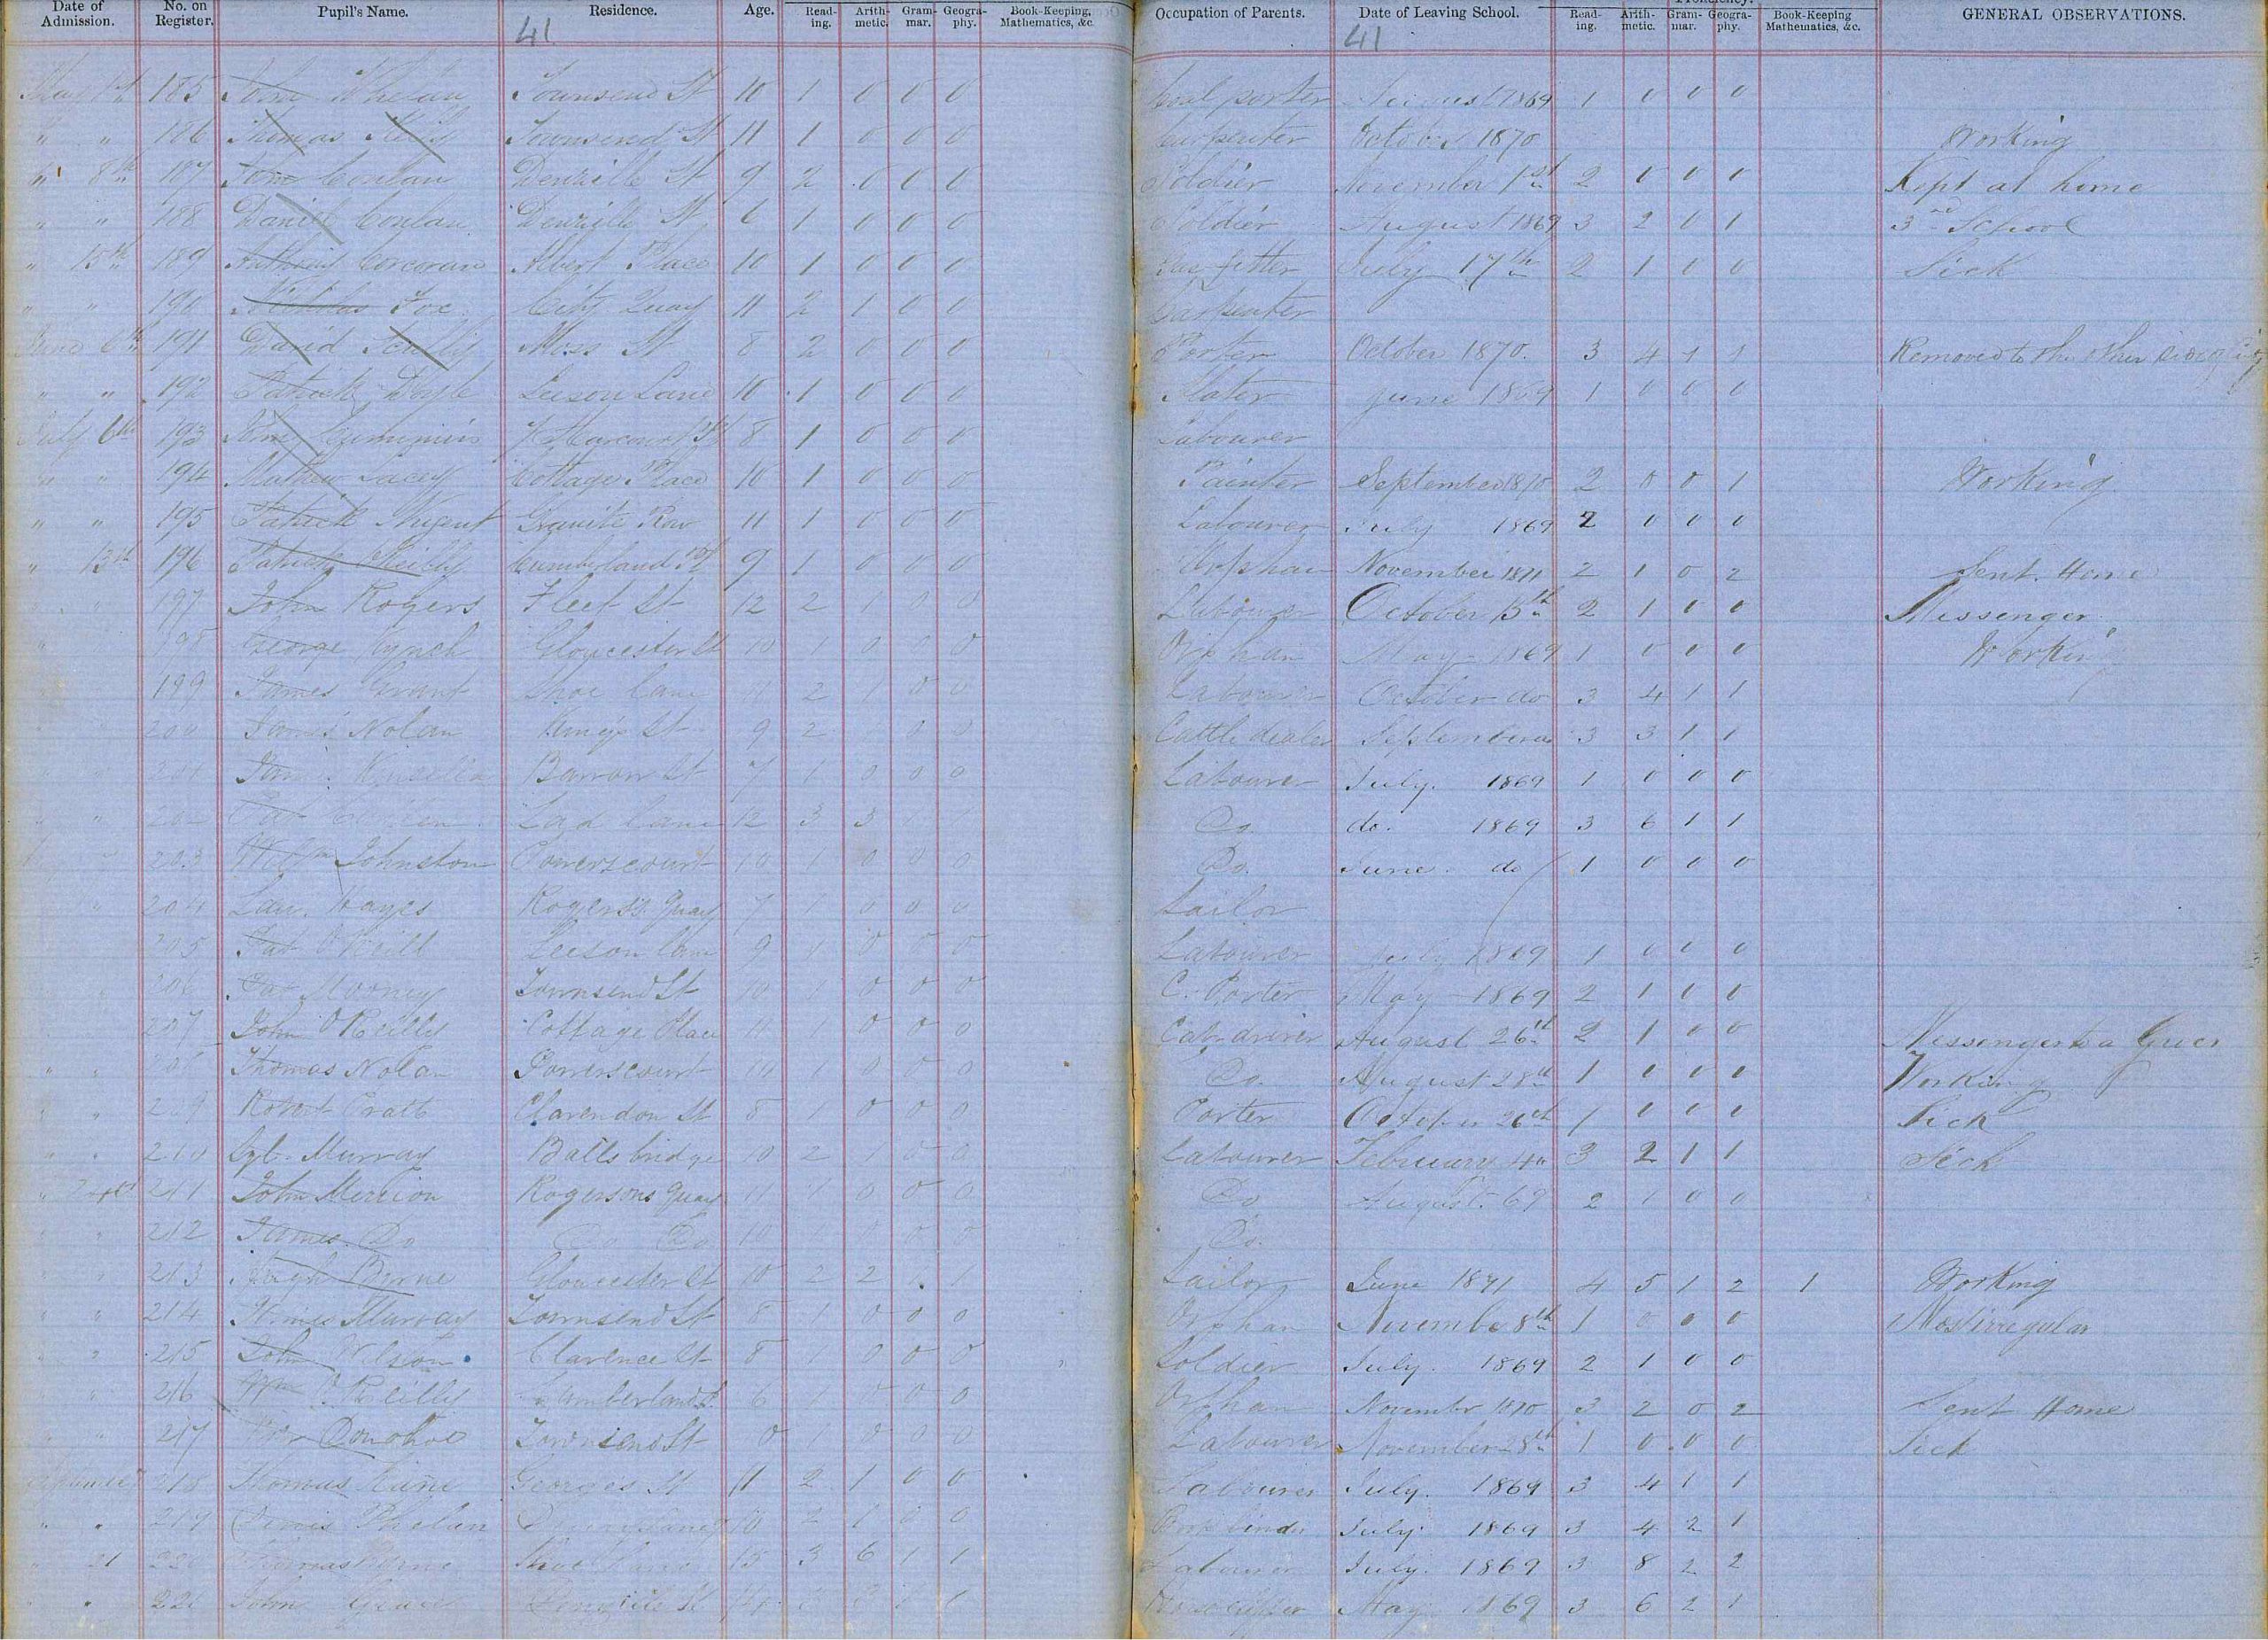 Date of Admission. No. on Register. Pupil's Name. Residence. Age. Read-ing. Arith-metic. Gram-mar. Geogra-phy. Book-Keeping, Mathematics, &c. Occupation of Parents. Date of Leaving School. Read-ing. Arith-metic. Gram-mar. Geogra-phy. Book-Keeping Mathematics, &c. GENERAL OBSERVATIONS.
41 41
May 1st 185 John Whelan Townsend St 10 1 0 0 0 Coal porter August 1869 1 0 0 0
" " 186 Thomas Townsend St 11 1 0 0 0 Carpenter October 1870 Working
" 8th 187 John Conlan Denzille St 9 2 0 0 0 Soldier November 1st 2 0 0 0 Kept at home
" " 188 Daniel Conlan Denzille St 6 1 0 0 0 Soldier August 1869 3 2 0 1 3rd School
" 15th 189 Anthony Corcoran Albert Place 10 1 0 0 0 Gas fitter July 17th 2 1 0 0 Sick
" " 190 Nicholas Fox City Quay 11 2 1 0 0 Carpenter
June 6th 191 David Scully Moss St 8 2 0 0 0 Porter October 1870. 3 4 1 1 Removed to the other side of City
" " 192 Patrick Doyle Leeson Lane 10 1 0 0 0 Slater June 1869 1 0 0 0
July 6th 193 Cummins Harcourt St 8 1 0 0 0 Labourer
" " 194 Mathew Lacey Cottage Place 10 1 0 0 0 Painter September 1870 2 0 0 1 Working
" " 195 Patrick Nugent Granite Row 11 1 0 0 0 Labourer July 1869 2 0 0 0
" 13th 196 Patrick O'Reilly Cumberland St 9 1 0 0 0 Orphan November 1871 2 1 0 2 Sent Home
197 John Rogers Fleet St 12 2 1 0 0 Labourer October 15th 2 1 0 0 Messenger
198 George Lynch Gloucester St 10 1 0 0 0 Orphan May 1869 1 0 0 0 Working
199 James Grant Shoe Lane 11 2 1 0 0 Labourer October do 3 4 1 1
200 James Nolan King St 9 2 0 0 Cattle dealer September do 3 3 1 1
201 James Kinsella Barrow St 7 1 0 0 0 Labourer July. 1869 1 0 0 0
202 Pat Lad Lane 12 3 3 1 1 Do. do. 1869 3 6 1 1
203 Willm Johnston Powerscourt 10 0 0 0 Do. June do 1 0 0 0
204 Law. Hayes Rogers's Quay 7 1 0 0 0 Sailor
205 Pat O'Neill Leeson Lane 9 1 0 0 0 Labourer July 1869 1 0 0 0
206 Pat Mooney Townsend St 10 1 0 0 0 C. Porter May 1869 2 1 0 0
207 John O'Reilly Cottage Place 11 0 0 0 Cab driver August 26th 2 1 0 0 Messenger to a Grocer
208 Thomas Nolan Powerscourt 10 1 0 0 0 Do. August 28th 1 0 0 0 Working
209 Robert Pratt Clarendon St 8 1 0 0 0 Porter October 26th 1 0 0 0 Sick
210 Syl. Murray Balls bridge 10 2 1 0 0 Labourer February 4th 3 2 1 1 Sick
211 John Merrion Rogersons Quay 11 1 0 0 0 Do August. 69 2 1 0 0
212 James Do Do Do 10 1 0 0 0 Do.
213 Hugh Byrne Gloucester St 10 2 2 1 1 Sailor June 1871 4 5 1 2 1 Working
214 James Murray Townsend St 8 1 0 0 0 Orphan November 8th 1 0 0 0 Most irregular
215 John Wilson Clarence St 8 0 0 0 Soldier July. 1869 2 1 0 0
216 Wm O'Reilly Cumberland St 6 1 0 0 0 Orphan November 1870 3 2 0 2 Sent Home
217 Wm Donohoe Townsend St 1 0 0 0 Labourer November 28th 1 0 0 0 Sick
September 218 Thomas Kane Georges St 11 2 1 0 0 Labourer July. 1869 3 4 1 1
219 Denis Phelan 10 2 1 0 0 Book binder July. 1869 3 4 2 1
" 21 220 Thomas Byrne Shoe Lane 15 3 6 1 1 Labourer July. 1869 3 8 2 2
221 John Denzille St May 1869 3 6 2 1